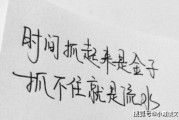 时间抓起来是金子
抓不住就是流水
搜狐号@小戚说文